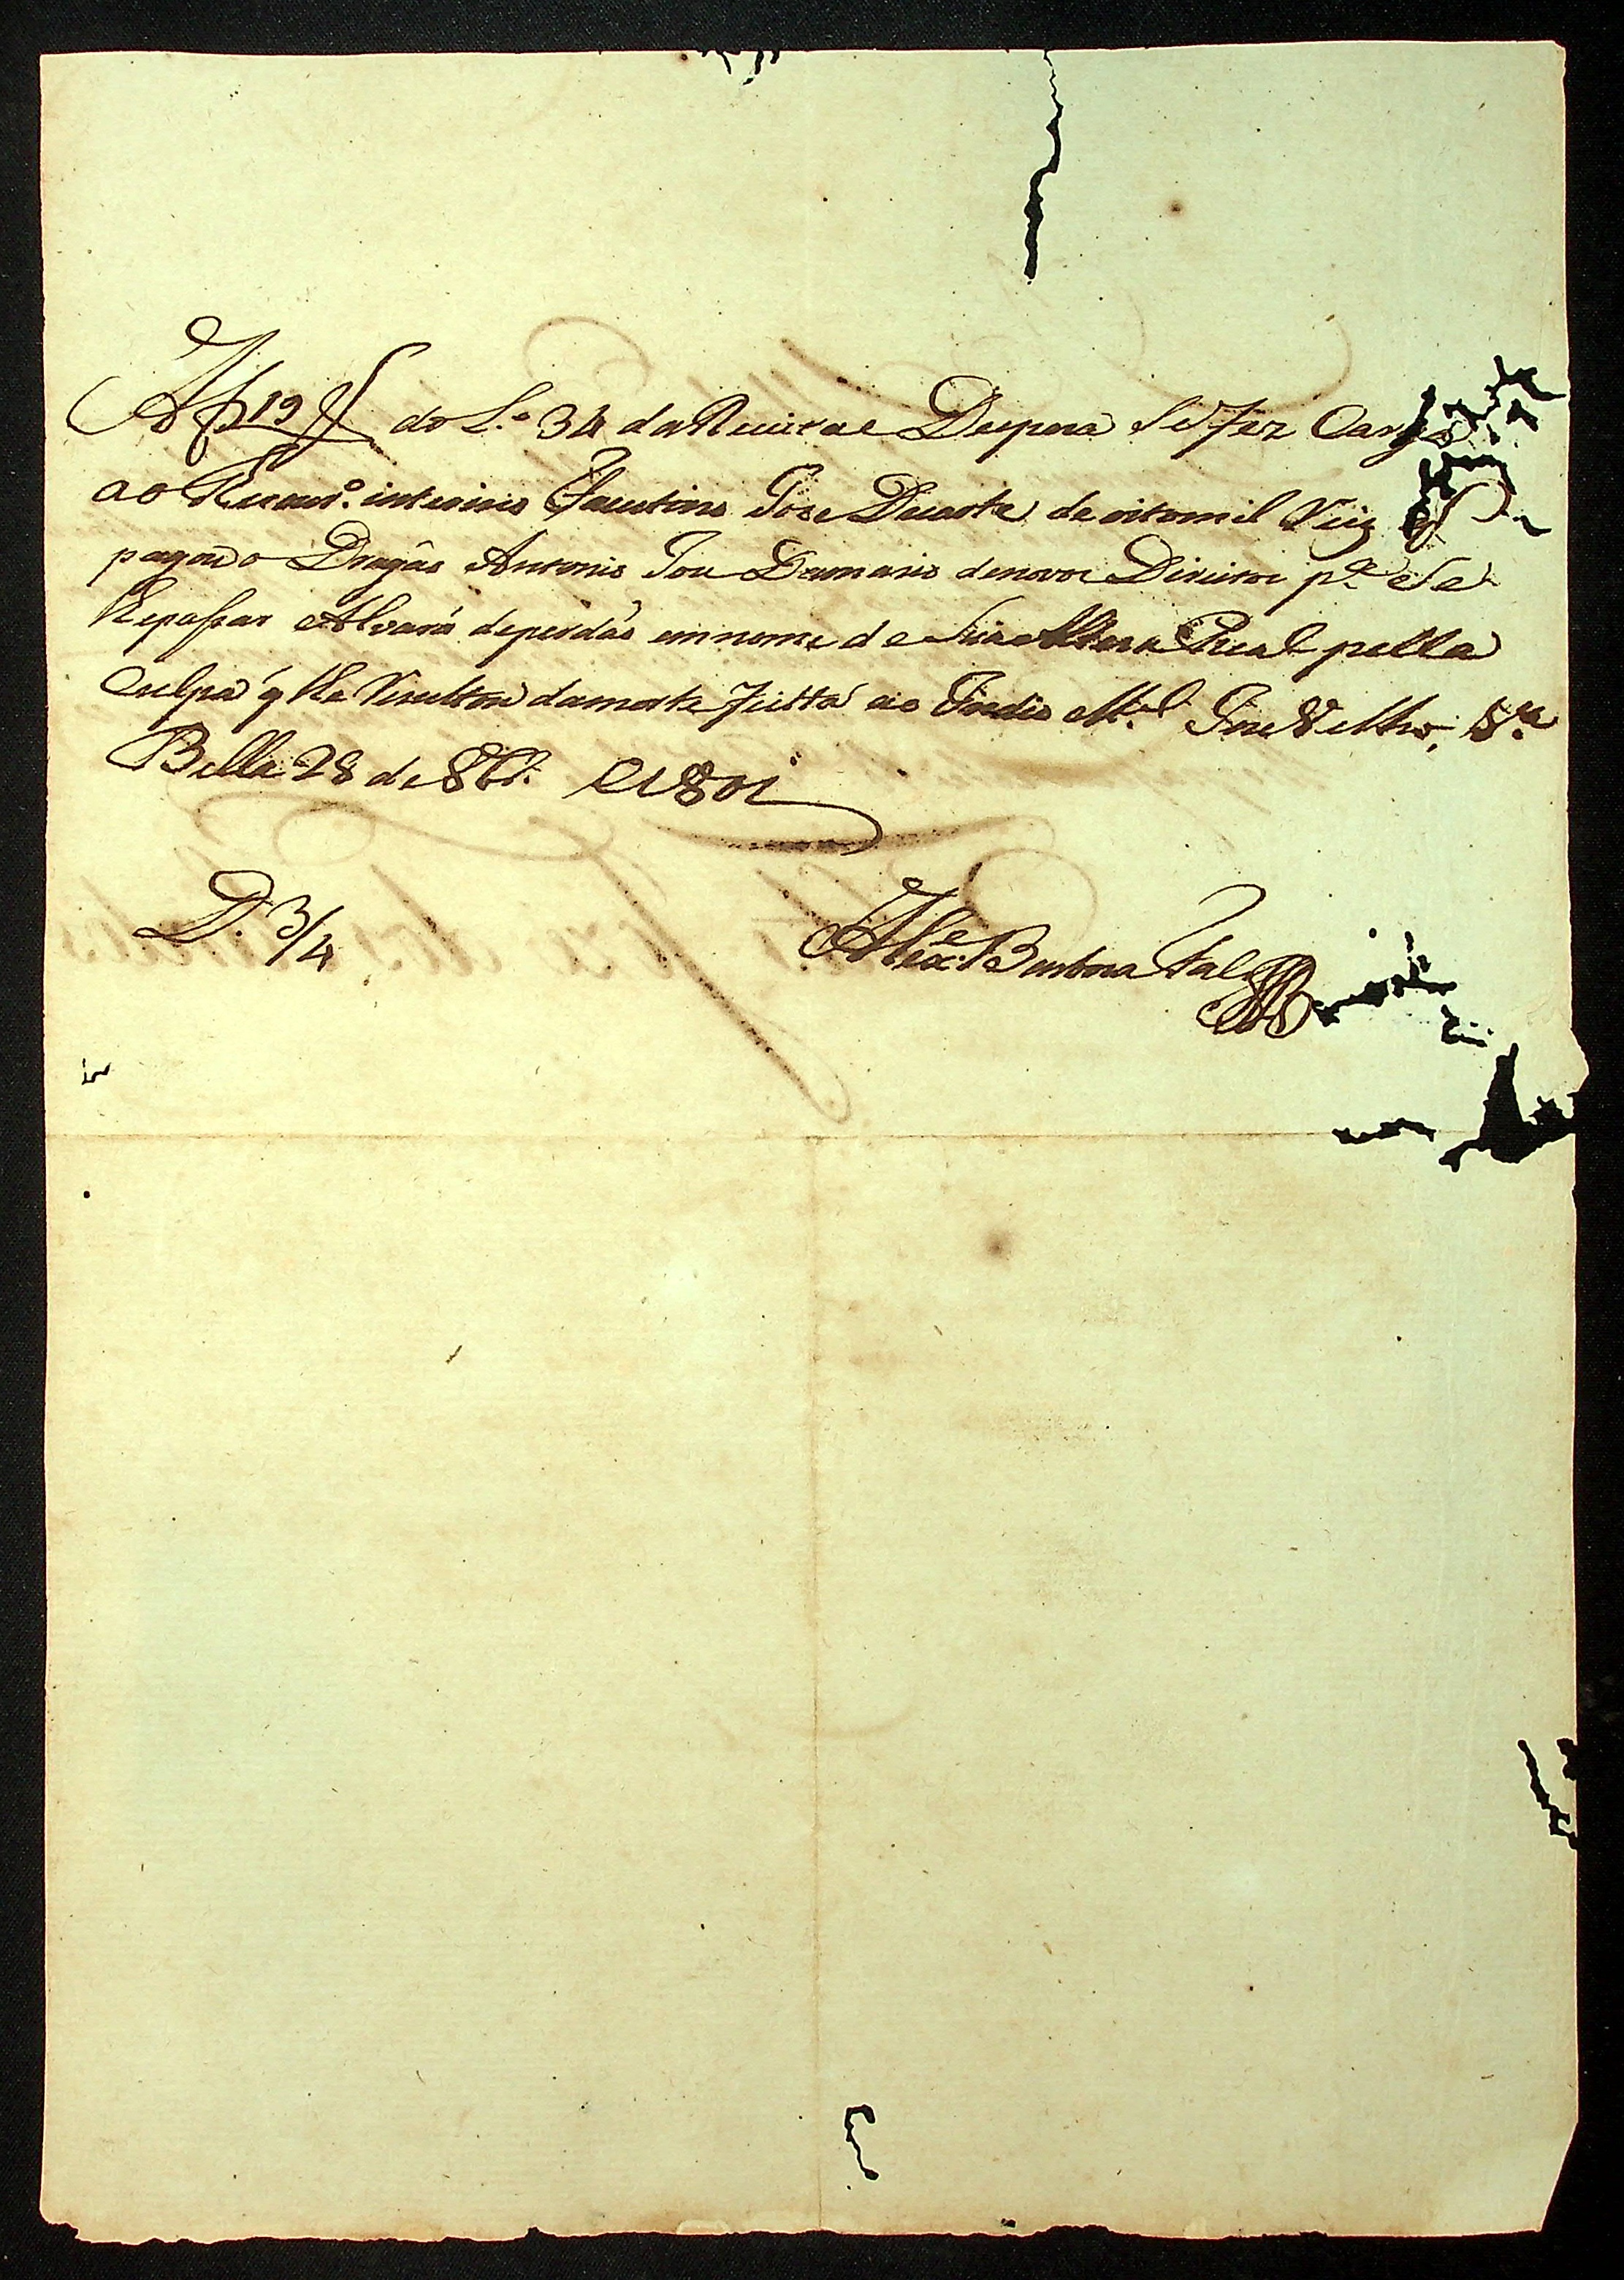 Af 19 do L.º 34 da Receita e Despeza Se fez Cargo
ao Thezour.º interino Faustino Joze Duarte de oito mil Reis q
pagou o Dragão Antonio Joze Damasio de novos Direitos p.ª Se
lhe passar Alvará de perdão em nome de Sua Alteza Real pella
Culpa q lhe Rezultou da morte feitta ao Indio M.el Joze Velho, V.ª
Bella 28 de 8br.º de 1801
D. 3/4
Alex.e Barboza